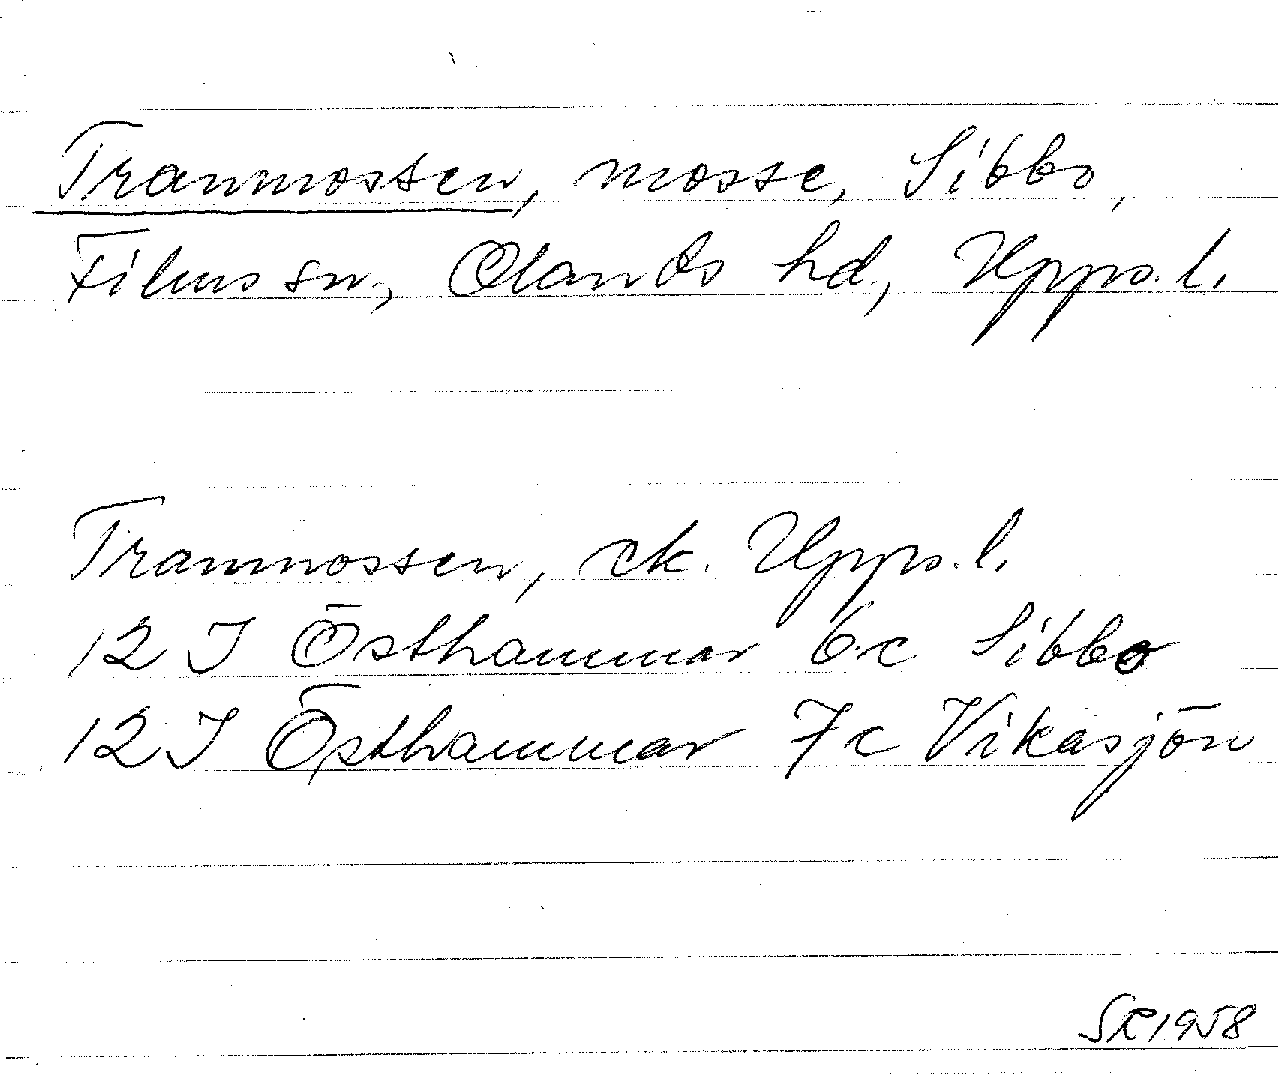 Tranmossen, mosse, Sibbo,
Films sn, Olands hd, Upps. l.
Tranmossen, ek. Upps. l.
12 I Östhammar 6c Sibbo
12 I Östhammar 7c Vikasjön
SR 1958